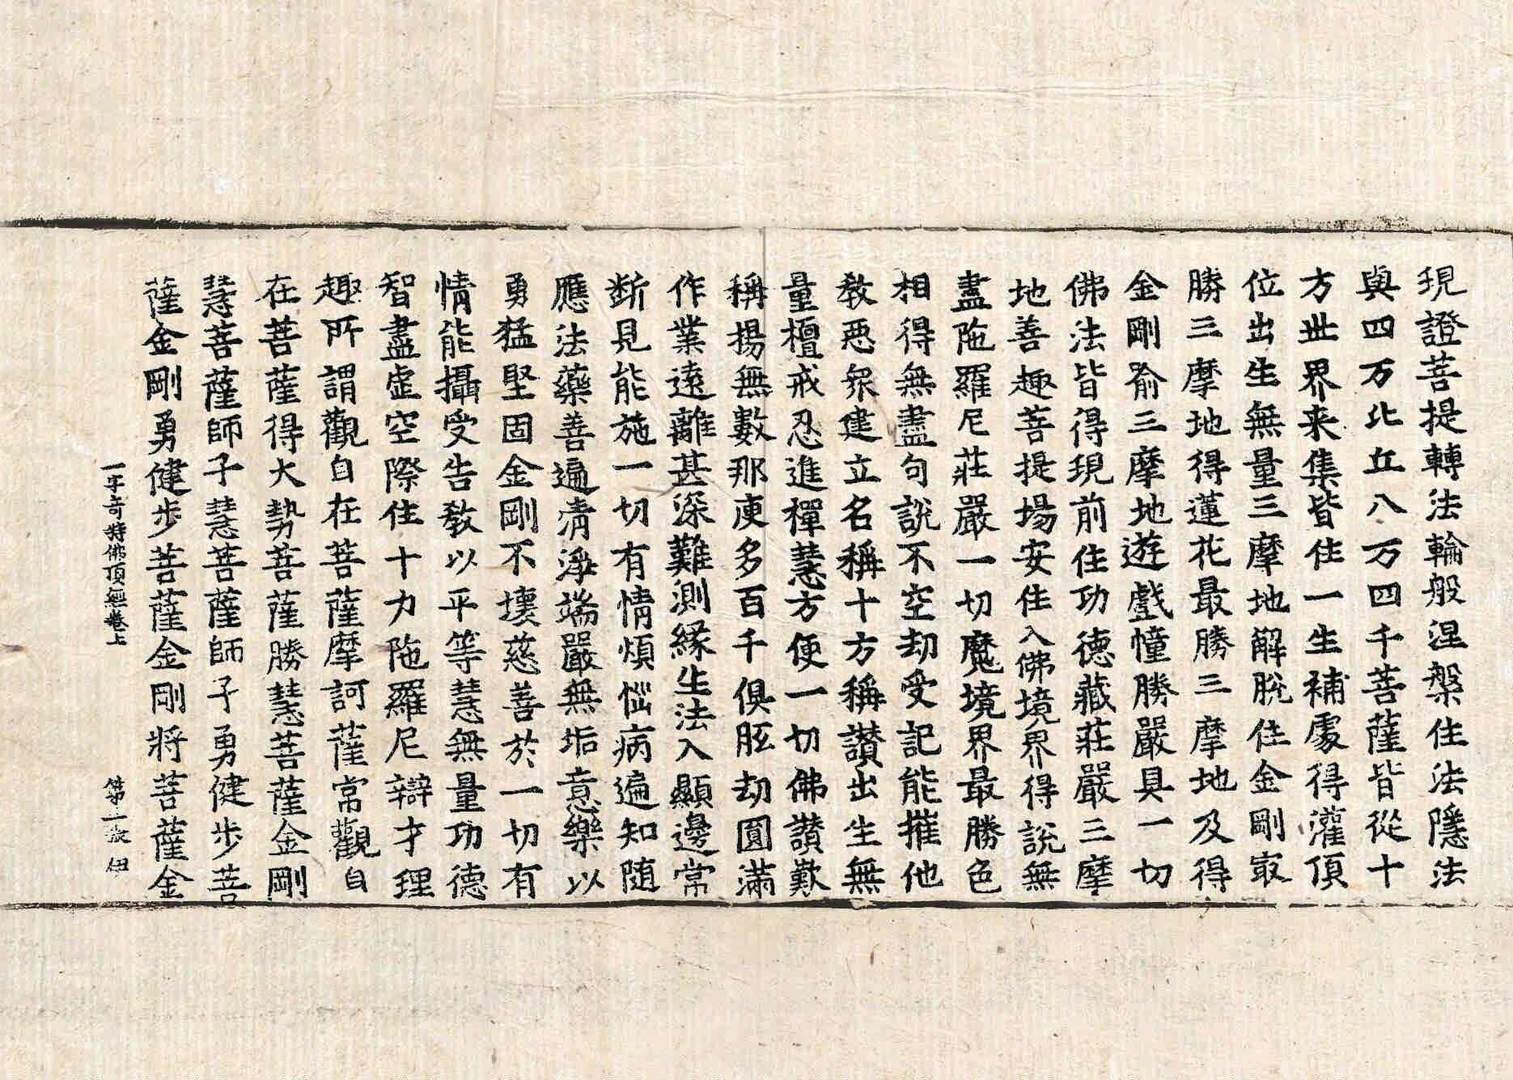 現證菩提轉法輪般涅槃住法隱法
與四万比丘八万四千菩薩皆從十
方世界来集皆住一生補處得灌頂
位出生無量三摩地解脫住金剛㝡
勝三摩地得蓮花最勝三摩地及得
金剛喻三摩地遊戲幢勝嚴具一切
佛法皆得現前住功德藏莊嚴三摩
地善趣菩提場安住入佛境界得説無
盡陁羅尼莊嚴一切魔境界最勝色
相得無盡句説不空劫受記能摧他
敎惡衆建立名稱十方稱讃出生無
量檀戒忍進禪慧方便一切佛讃歎
稱揚無數那庾多百千俱胝劫圓滿
作業遠離甚深難測縁生法入顯邊常
断見能施一切有情煩惱病遍知随
應法藥善遍清淨端嚴無垢意樂以
勇猛堅固金剛不壞慈善於一切有
情能攝受告敎以平等慧無量功德
智盡虛空際住十力陁羅尼辯才理
趣所謂觀自在菩薩摩訶薩常觀自
在菩薩得大勢菩薩勝慧菩薩金剛
慧菩薩師子慧菩薩師子勇健步菩
薩金剛勇健步菩薩金剛將菩薩金
一字奇特佛頂經卷上　第二張　俎